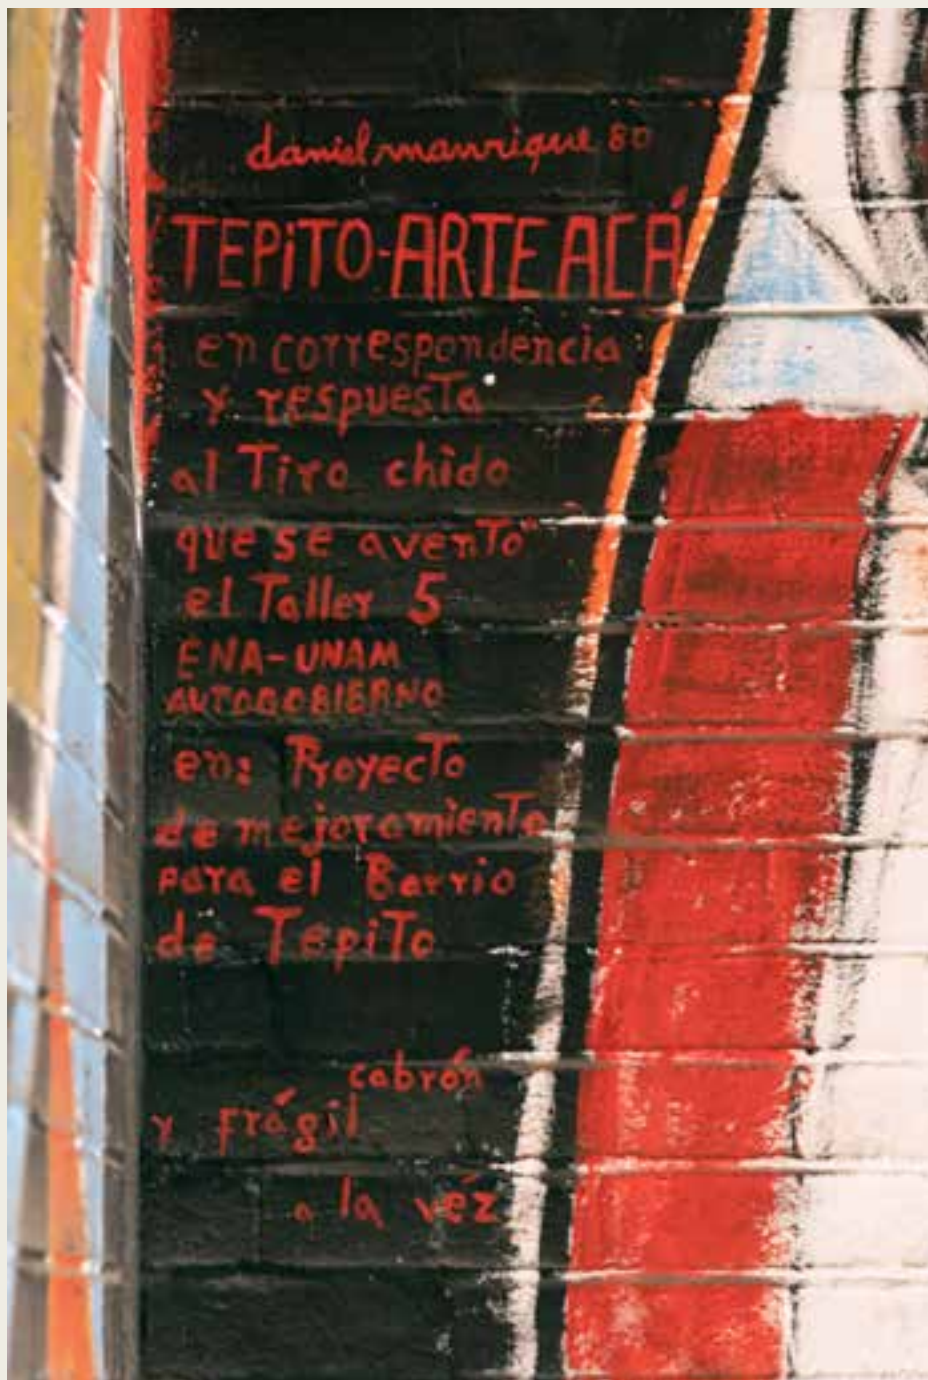 daniel manrique 80
TEPiTO-ARTE ACÁ
en correspondencia
y respuesta
al Tiro chido
que se aventó
el Taller 5
ENA-UNAM
AUTOGOBIERNO
en: Proyecto
de mejoramiento
para el Barrio
de Tepito
cabrón
y frágil
a la véz